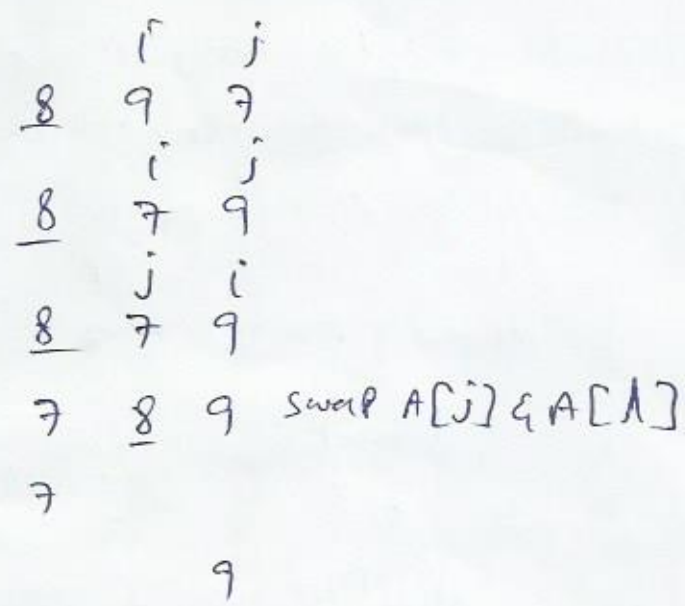 i j
8 9 7
i j
8 7 9
j i
8 7 9
7 8 9 swap A[j] & A[l]
7
9